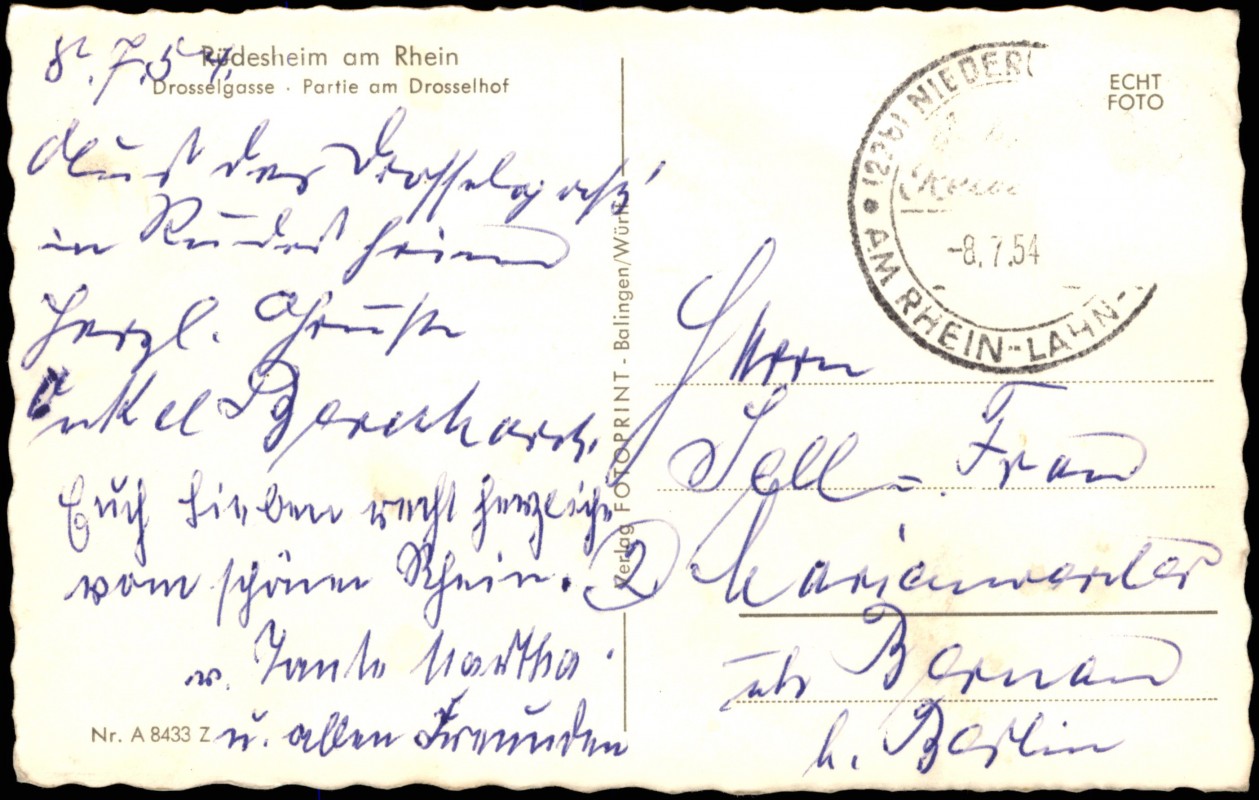 8.7.54.
Rüdesheim am Rhein
Drosselgasse · Partie am Drosselhof
Aus der Drosselgasse
in Rüdesheim
herzl. Grüße
Onkel Bernhard.
Euch Lieben recht herzliche
vom schönen Rhein.
u. Tante Martha.
u. allen Freunden
Nr. A 8433 Z
Verlag FOTOPRINT - Balingen/Württ
ECHT
FOTO
NIEDER
AM RHEIN-LAHN-
-8.7.54
Herrn
Sell u. Frau
2 Marienwerder
üb Bernau
b. Berlin